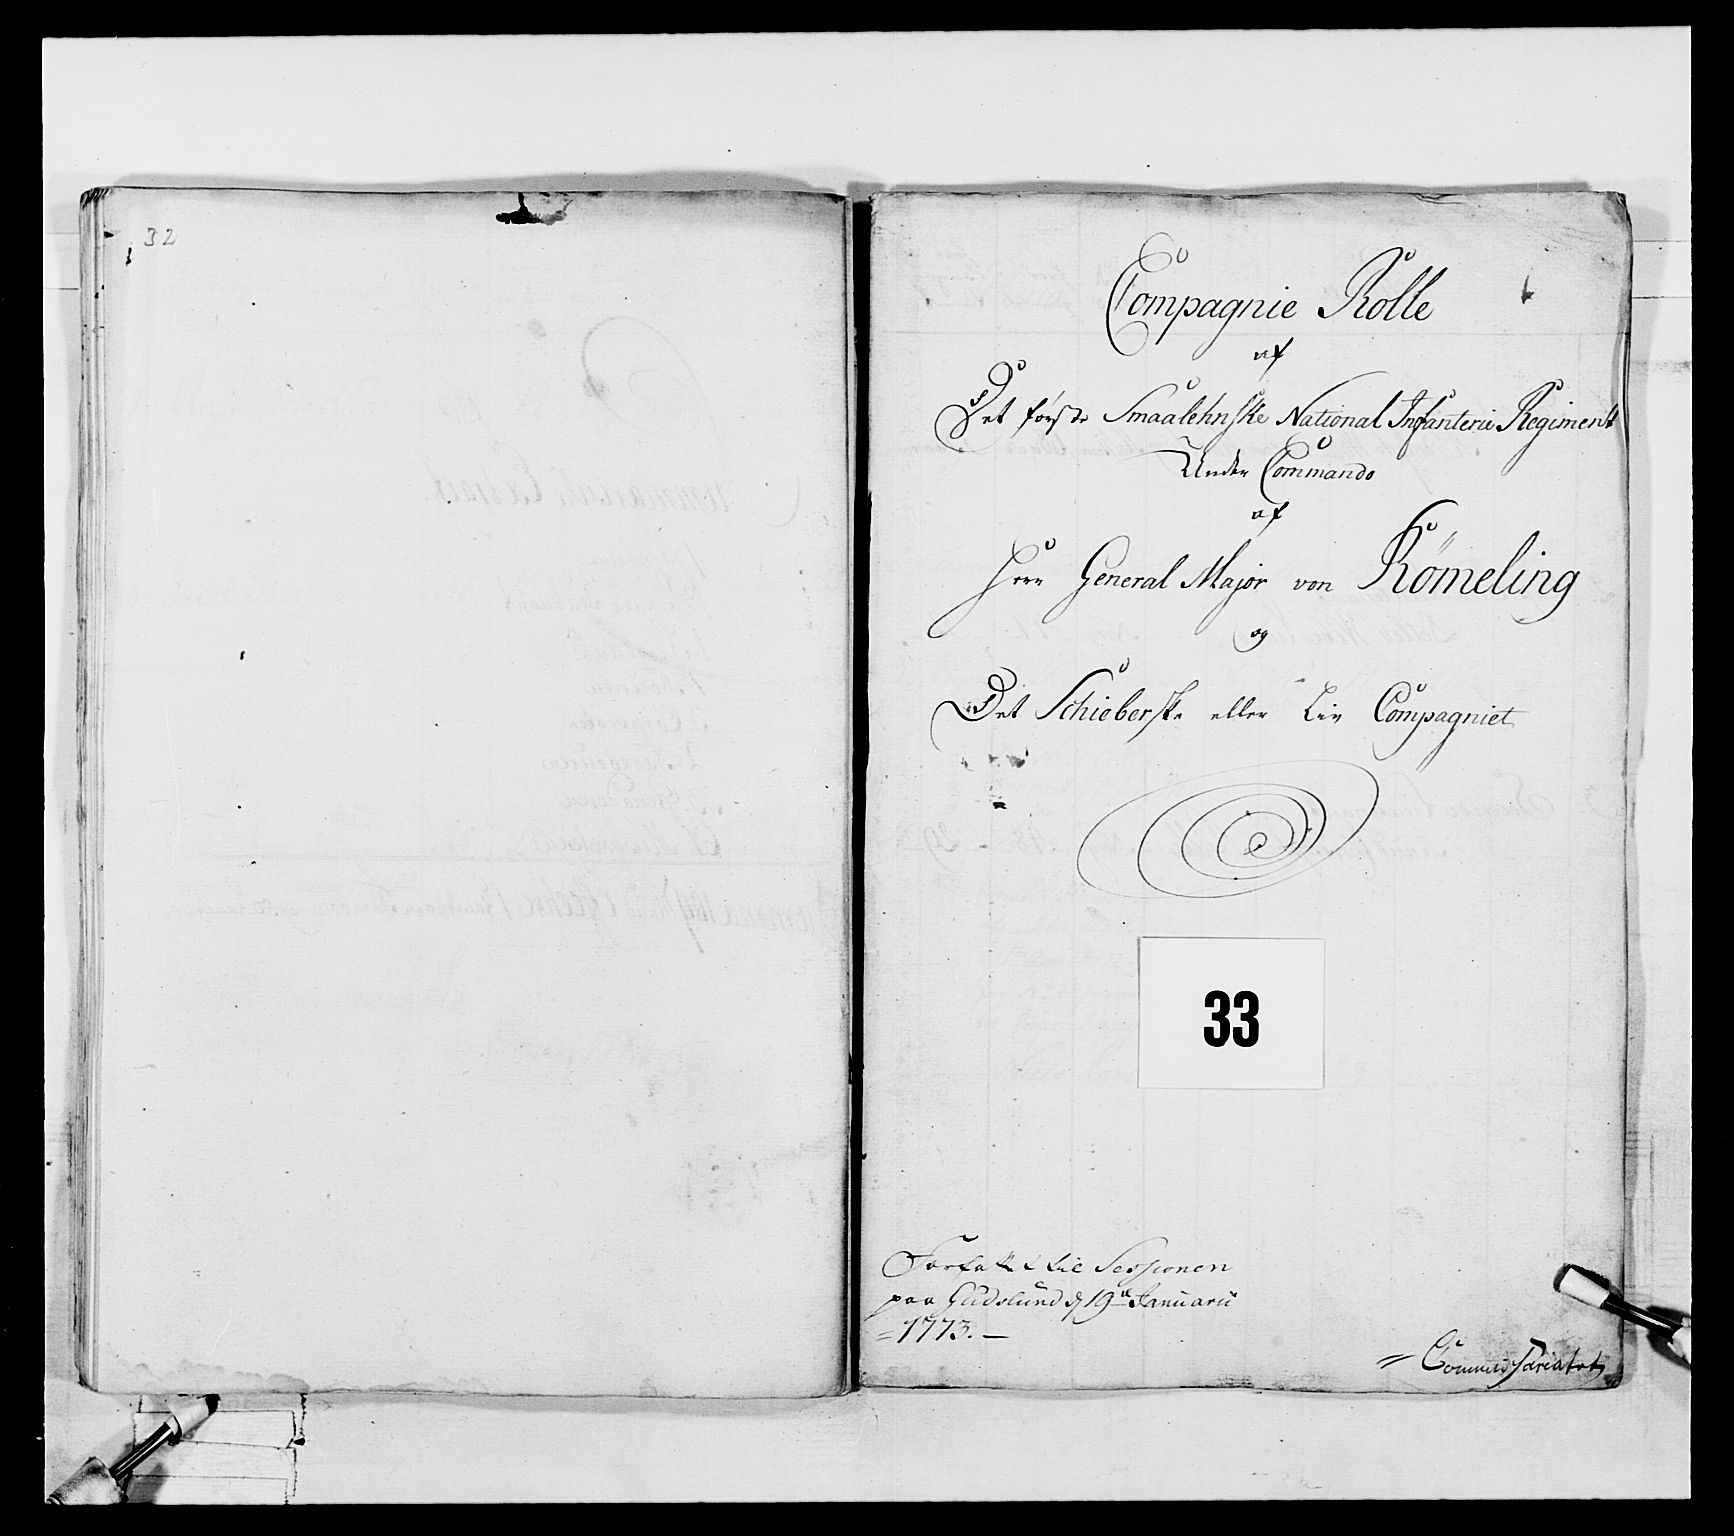 32
Compagnie Rolle
af
Det første Smaalehnske National Infanterie Regiment
Under Commando
af
Herr General Major von Römeling
og
Det Schieberske eller Liv Compagniet
33
Forfattet til Sessionen
paa Gudslund d 19de Januarii
=1773.—
= Commissariatet